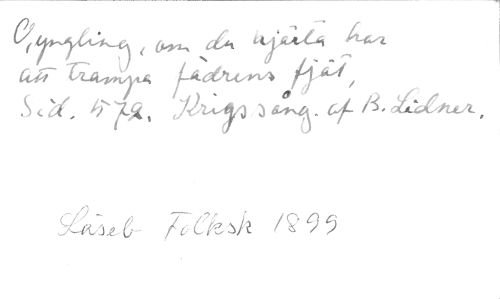 O, yngling, om du hjärta har
att trampa fädrens fjät,
Sid. 579. Krigssång. af B. Lidner.
Läseb Folksk 1899